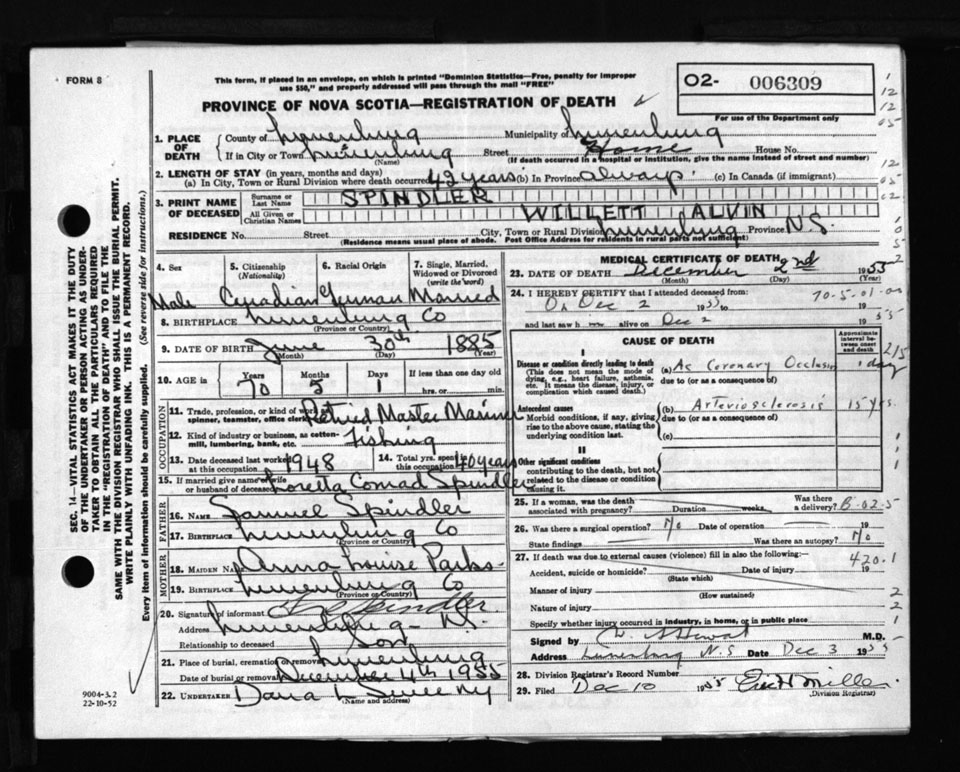 FORM 8
This form, if placed in an envelope, on which is printed "Dominion Statistics—Free, penalty for improper
use $50," and properly addressed will pass through the mail "FREE"
O2- 006309
For use of the Department only
PROVINCE OF NOVA SCOTIA—REGISTRATION OF DEATH
1. PLACE OF DEATH County of Lunenburg Municipality of Lunenburg
If in City or Town Lunenburg (Name) Street Home House No.
(If death occurred in a hospital or institution, give the name instead of street and number)
2. LENGTH OF STAY (in years, months and days)
(a) In City, Town or Rural Division where death occurred 42 years (b) In Province always (c) In Canada (if immigrant)
3. PRINT NAME OF DECEASED Surname or Last Name SPINDLER
All Given or Christian Names WILLETT ALVIN
RESIDENCE No. Street City, Town or Rural Division Lunenburg Province N.S.
(Residence means usual place of abode. Post Office Address for residents in rural parts not sufficient)
4. Sex 5. Citizenship (Nationality) 6. Racial Origin 7. Single, Married, Widowed or Divorced (write the word)
Male Canadian German Married
8. BIRTHPLACE Lunenburg Co
(Province or Country)
9. DATE OF BIRTH June 30th 1885
(Month) (Day) (Year)
10. AGE in Years Months Days If less than one day old
70 5 1 hrs. or min.
OCCUPATION
11. Trade, profession, or kind of work, spinner, teamster, office clerk Retired Master Mariner
12. Kind of industry or business, as cotten-mill, lumbering, bank, etc. Fishing
13. Date deceased last worked at this occupation 1948 14. Total yrs. spent in this occupation 40 years
15. If married give name of wife or husband of deceased Loretta Conrad Spindler
FATHER
16. NAME Samuel Spindler
17. BIRTHPLACE Lunenburg Co
(Province or Country)
MOTHER
18. MAIDEN NAME Anna Louise Parks
19. BIRTHPLACE Lunenburg Co
(Province or Country)
20. Signature of informant Spindler
Address Lunenburg N.S.
Relationship to deceased Son
21. Place of burial, cremation or removal Lunenburg
Date of burial or removal December 4th 1955
22. UNDERTAKER Dana L Sweeny
9004-3.2
22-10-52
SEC. 14—VITAL STATISTICS ACT MAKES IT THE DUTY
OF THE UNDERTAKER OR PERSON ACTING AS UNDER-
TAKER TO OBTAIN ALL THE PARTICULARS REQUIRED
IN THE "REGISTRATION OF DEATH" AND TO FILE THE
SAME WITH THE DIVISION REGISTRAR WHO SHALL ISSUE THE BURIAL PERMIT.
WRITE PLAINLY WITH UNFADING INK. THIS IS A PERMANENT RECORD.
Every item of information should be carefully supplied. (See reverse side for instructions.)
MEDICAL CERTIFICATE OF DEATH
23. DATE OF DEATH December 2nd 1955
(Month) (Day) (Year)
24. I HEREBY CERTIFY that I attended deceased from: 70-5-01-00
On Dec 2 1955 to 1955
and last saw h m alive on Dec 2
CAUSE OF DEATH
Approximate interval between onset and death
I
Disease or condition directly leading to death
(This does not mean the mode of dying, e.g., heart failure, asthenia, etc. It means the disease, injury, or complication which caused death.)
(a) Ac Coronary Occlusion 1 day
due to (or as a consequence of)
Antecedent causes
Morbid conditions, if any, giving rise to the above cause, stating the underlying condition last.
(b) Arteriosclerosis 15 yrs.
due to (or as a consequence of)
(c)
II
Other significant conditions
contributing to the death, but not related to the disease or condition causing it.
25. If a woman, was the death associated with pregnancy? Duration weeks Was there a delivery? B-02-5
26. Was there a surgical operation? No Date of operation 19
State findings Was there an autopsy? No
27. If death was due to external causes (violence) fill in also the following:— 420.1
Accident, suicide or homicide? (State which) Date of injury 19
Manner of injury (How sustained)
Nature of injury
Specify whether injury occurred in industry, in home, or in public place
Signed by M.D.
Address Lunenburg N.S Date Dec 3 1955
28. Division Registrar's Record Number
29. Filed Dec 10 1955 Miller
(Division Registrar)